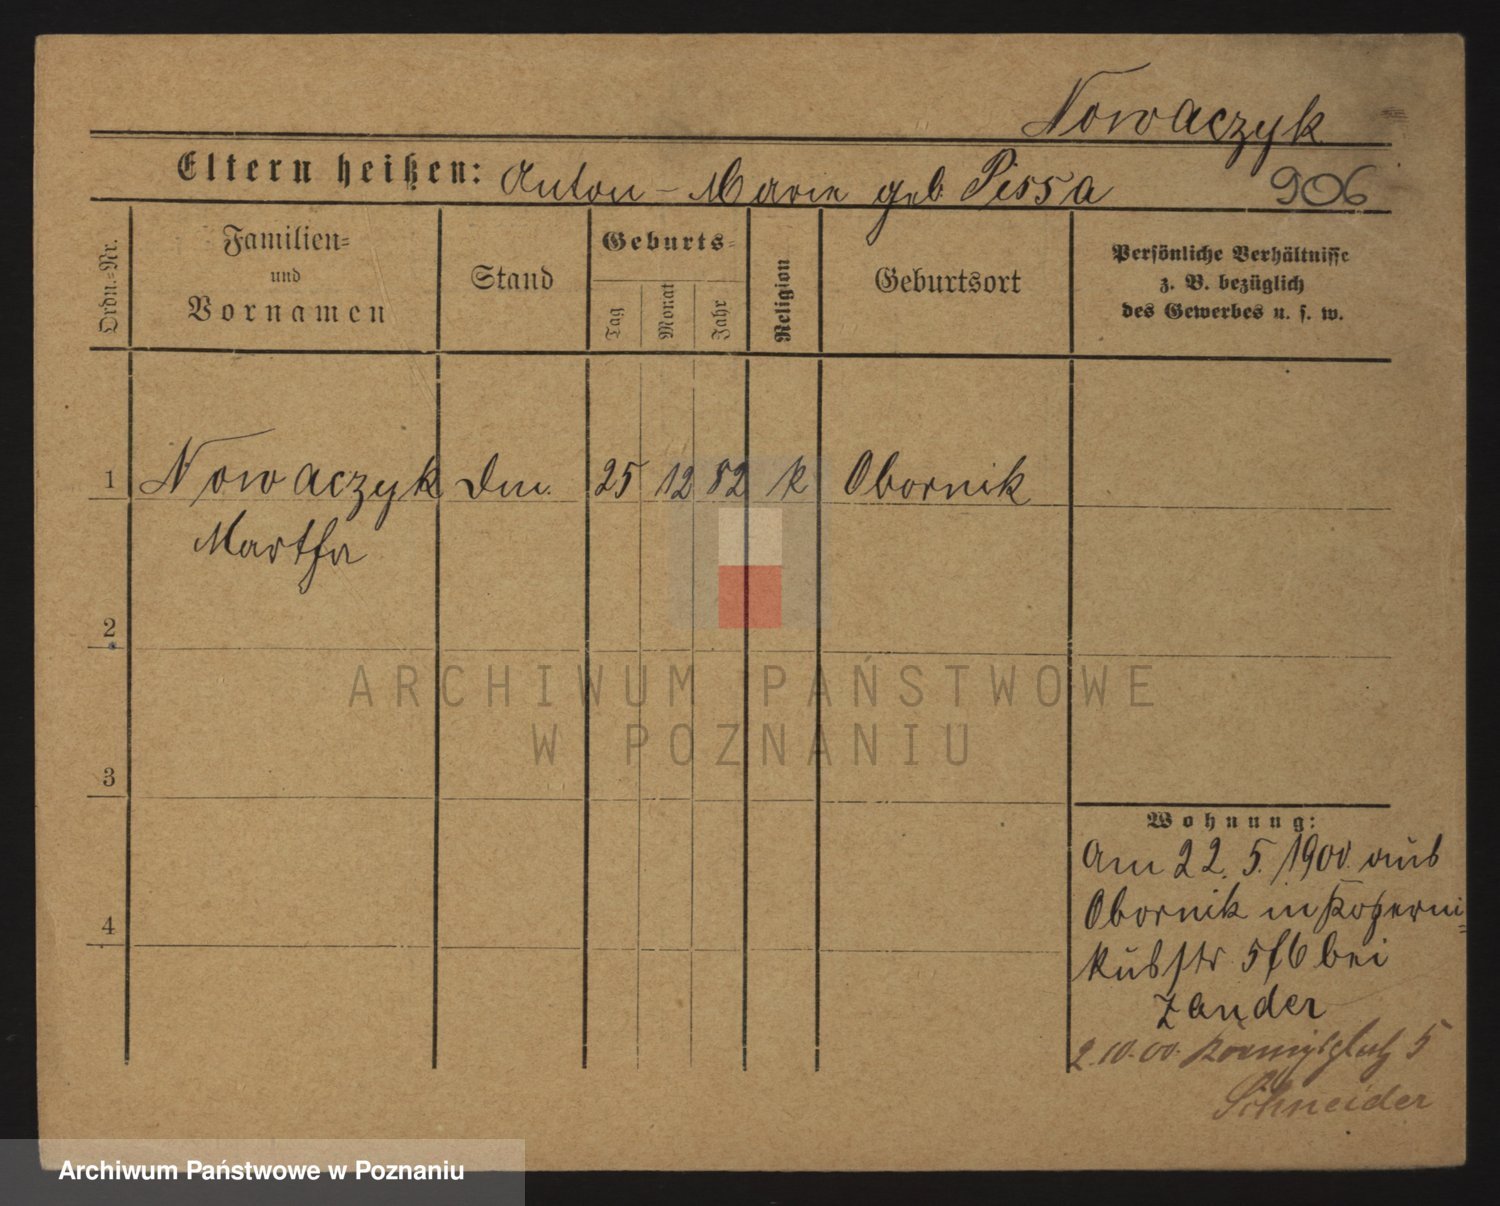 Nowaczyk
Eltern heißen: Anton – Marie geb. Pissa 906
Ordn.=Nr.
Familien=
und
Vornamen
Stand
Geburts=
Tag
Monat
Jahr
Religion
Geburtsort
Persönliche Verhältnisse
z. B. bezüglich
des Gewerbes u. s. w.
1 Nowaczyk 25 12 82 k Obornik
Martha
2
ARCHIWUM PAŃSTWOWE
W POZNANIU
3
Wohnung:
Am 22. 5. 1900. aus
Obornik in Koperni
=
kusstr 5/6 bei
Zander
4
2.10.00. Koenigsplatz 5
Schneider
Archiwum Państwowe w Poznaniu